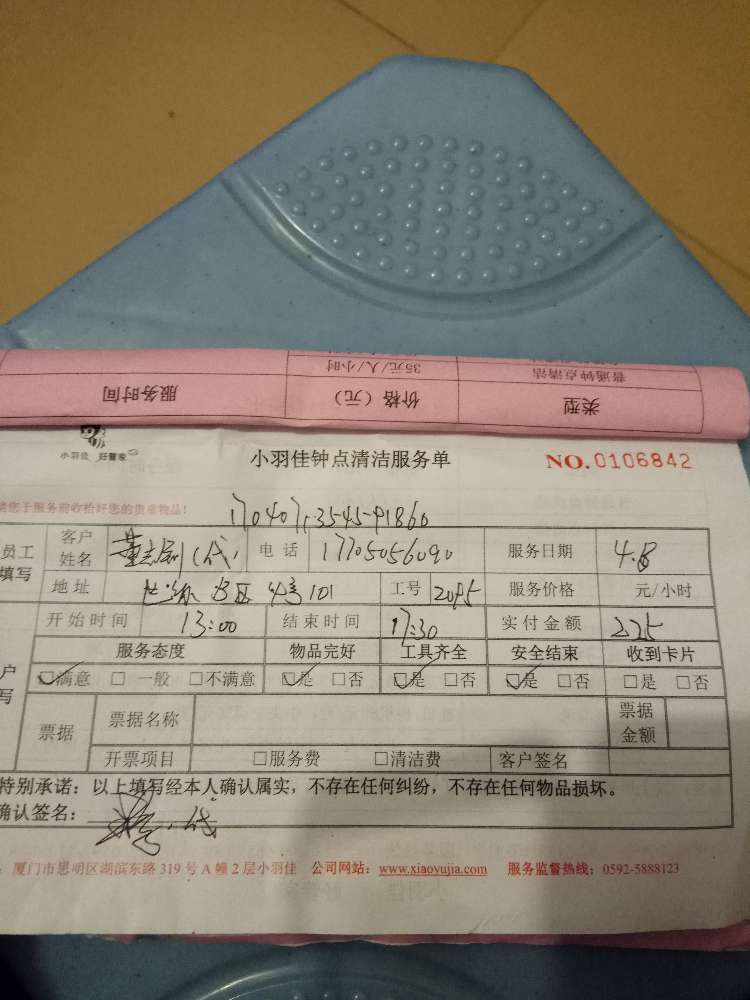 普通钟点清洁 35元/人/小时
类型 价格（元） 服务时间
小羽佳 好管家
小羽佳钟点清洁服务单 NO.0106842
您于服务前收检好您的贵重物品！
员工填写 客户姓名 (代) 电话 17705056090 服务日期 4.8
地址 B区 101 工号 2095 服务价格 元/小时
开始时间 13:00 结束时间 17:30 实付金额 225
服务态度 物品完好 工具齐全 安全结束 收到卡片
户写 ☑满意 □ 一般 □不满意 ☑是 □否 ☑是 □否 ☑是 □否 □是 □否
票据 票据名称 票据金额
开票项目 □服务费 □清洁费 客户签名
特别承诺：以上填写经本人确认属实，不存在任何纠纷，不存在任何物品损坏。
确认签名： 代
：厦门市思明区湖滨东路 319 号 A 幢 2 层小羽佳 公司网站：www.xiaoyujia.com 服务监督热线：0592-5888123